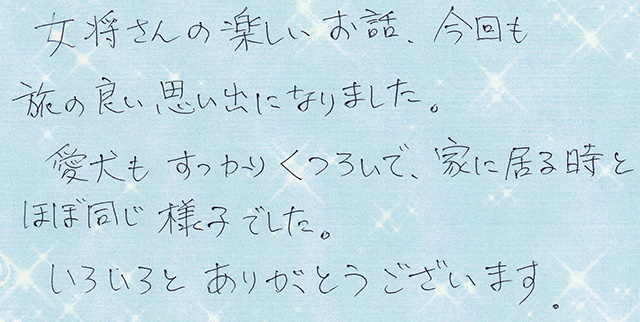 女将さんの楽しいお話、今回も
旅の良い思い出になりました。
愛犬もすっかりくつろいで、家に居る時と
ほぼ同じ様子でした。
いろいろとありがとうございます。